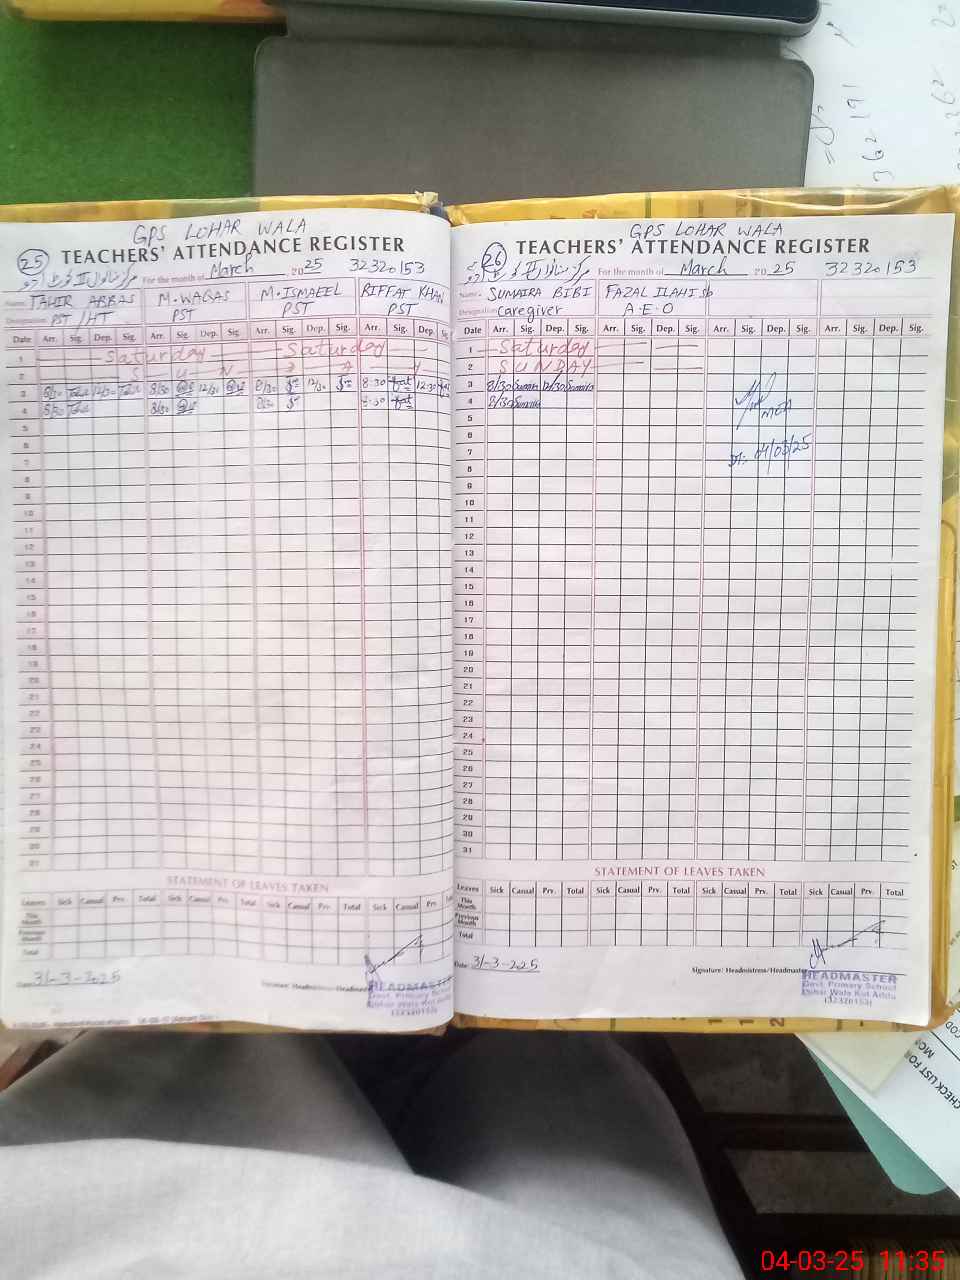 GPS LOHAR WALA
25 TEACHERS' ATTENDANCE REGISTER
For the month of March 2025 32320153
Name TAHIR ABBAS M.WAQAS M.ISMAEEL RIFFAT KHAN
Designation PST/HT PST PST PST
Date Arr. Sig. Dep. Sig. Arr. Sig. Dep. Sig. Arr. Sig. Dep. Sig. Arr. Sig. Dep. Sig.
1 Saturday Saturday
2 S U N D A Y
3 8/30 12/30 8/30 12/30 8/30 12/30 8:30 12:30
4 8/30 8/30 8/30 8:30
5
6
7
8
9
10
11
12
13
14
15
16
17
18
19
20
21
22
23
24
25
26
27
28
29
30
31
STATEMENT OF LEAVES TAKEN
Leaves Sick Casual Prv. Total Sick Casual Prv. Total Sick Casual Prv. Total Sick Casual Prv.
This Month
Previous Month
Total
Date 31-3-2025
HEADMASTER
Govt. Primary School
Lohar Wala Kot Addu
(32320153)
GPS LOHAR WALA
26 TEACHERS' ATTENDANCE REGISTER
For the month of March 2025 32320153
Name SUMAIRA BIBI FAZAL ILAHI Sb
Designation caregiver A.E.O
Date Arr. Sig. Dep. Sig. Arr. Sig. Dep. Sig. Arr. Sig. Dep. Sig. Arr. Sig. Dep. Sig.
1 Saturday
2 SUNDAY
3 8/30 Sumaira 12/30 Sumaira
4 8/30 Sumaira
5
6
7
8
9
10
11
12
13
14
15
16
17
18
19
20
21
22
23
24
25
26
27
28
29
30
31
MEA
Dt: 04/03/25
STATEMENT OF LEAVES TAKEN
Leaves Sick Casual Prv. Total Sick Casual Prv. Total Sick Casual Prv. Total Sick Casual Prv. Total
This Month
Previous Month
Total
Date 31-3-2025
Signature: Headmistress/Headmaster
HEADMASTER
Govt. Primary School
Lohar Wala Kot Addu
(32320153)
CHECK LIST FO
04-03-25 11:35